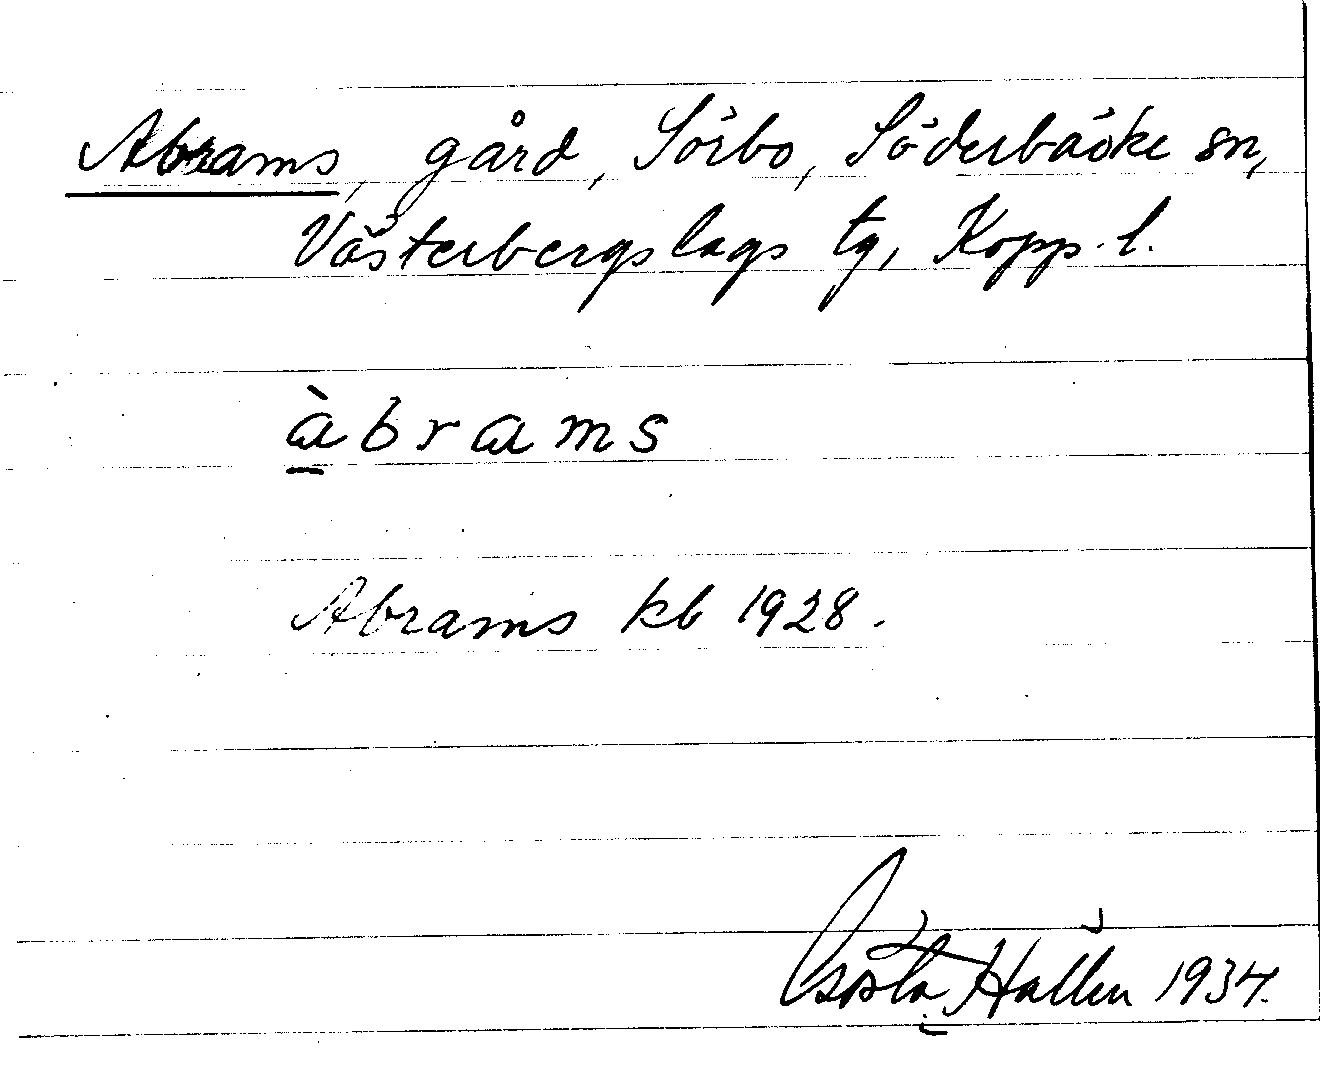 Abrams, gård, Sörbo, Söderbäcke sn,
Västerbergslags tg, Kopp. l.
àbrams
Abrams kb 1928.
Gösta Hallén 1934.